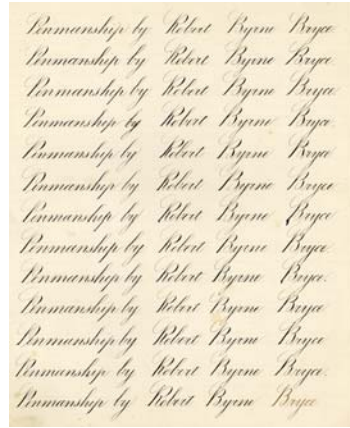 Penmanship by Robert Byrne Bryce.
Penmanship by Robert Byrne Bryce
Penmanship by Robert Byrne Bryce
Penmanship by Robert Byrne Bryce.
Penmanship by Robert Byrne Bryce
Penmanship by Robert Byrne Bryce
Penmanship by Robert Byrne Bryce
Penmanship by Robert Byrne Bryce.
Penmanship by Robert Byrne Bryce.
Penmanship by Robert Byrne Bryce
Penmanship by Robert Byrne Bryce
Penmanship by Robert Byrne Bryce.
Penmanship by Robert Byrne Bryce